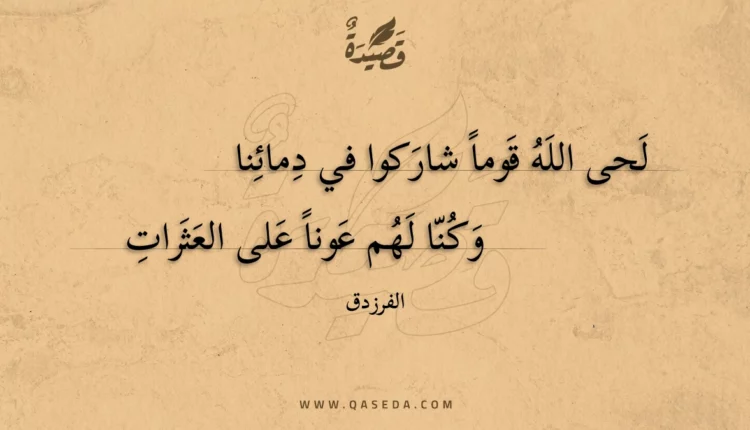 قَصِيْدَةٌ
لَحى اللَهُ قَوماً شارَكوا في دِمائِنا
وَكُنّا لَهُم عَوناً عَلى العَثَراتِ
الفرزدق
WWW.QASEDA.COM